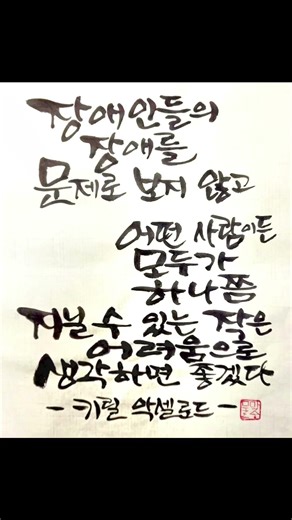 장애인들의
장애를
문제로 보지 않고
어떤 사람이든
모두가
하나쯤
지닐 수 있는 작은
어려움으로
생각하면 좋겠다
- 키릴 악셀로드 -